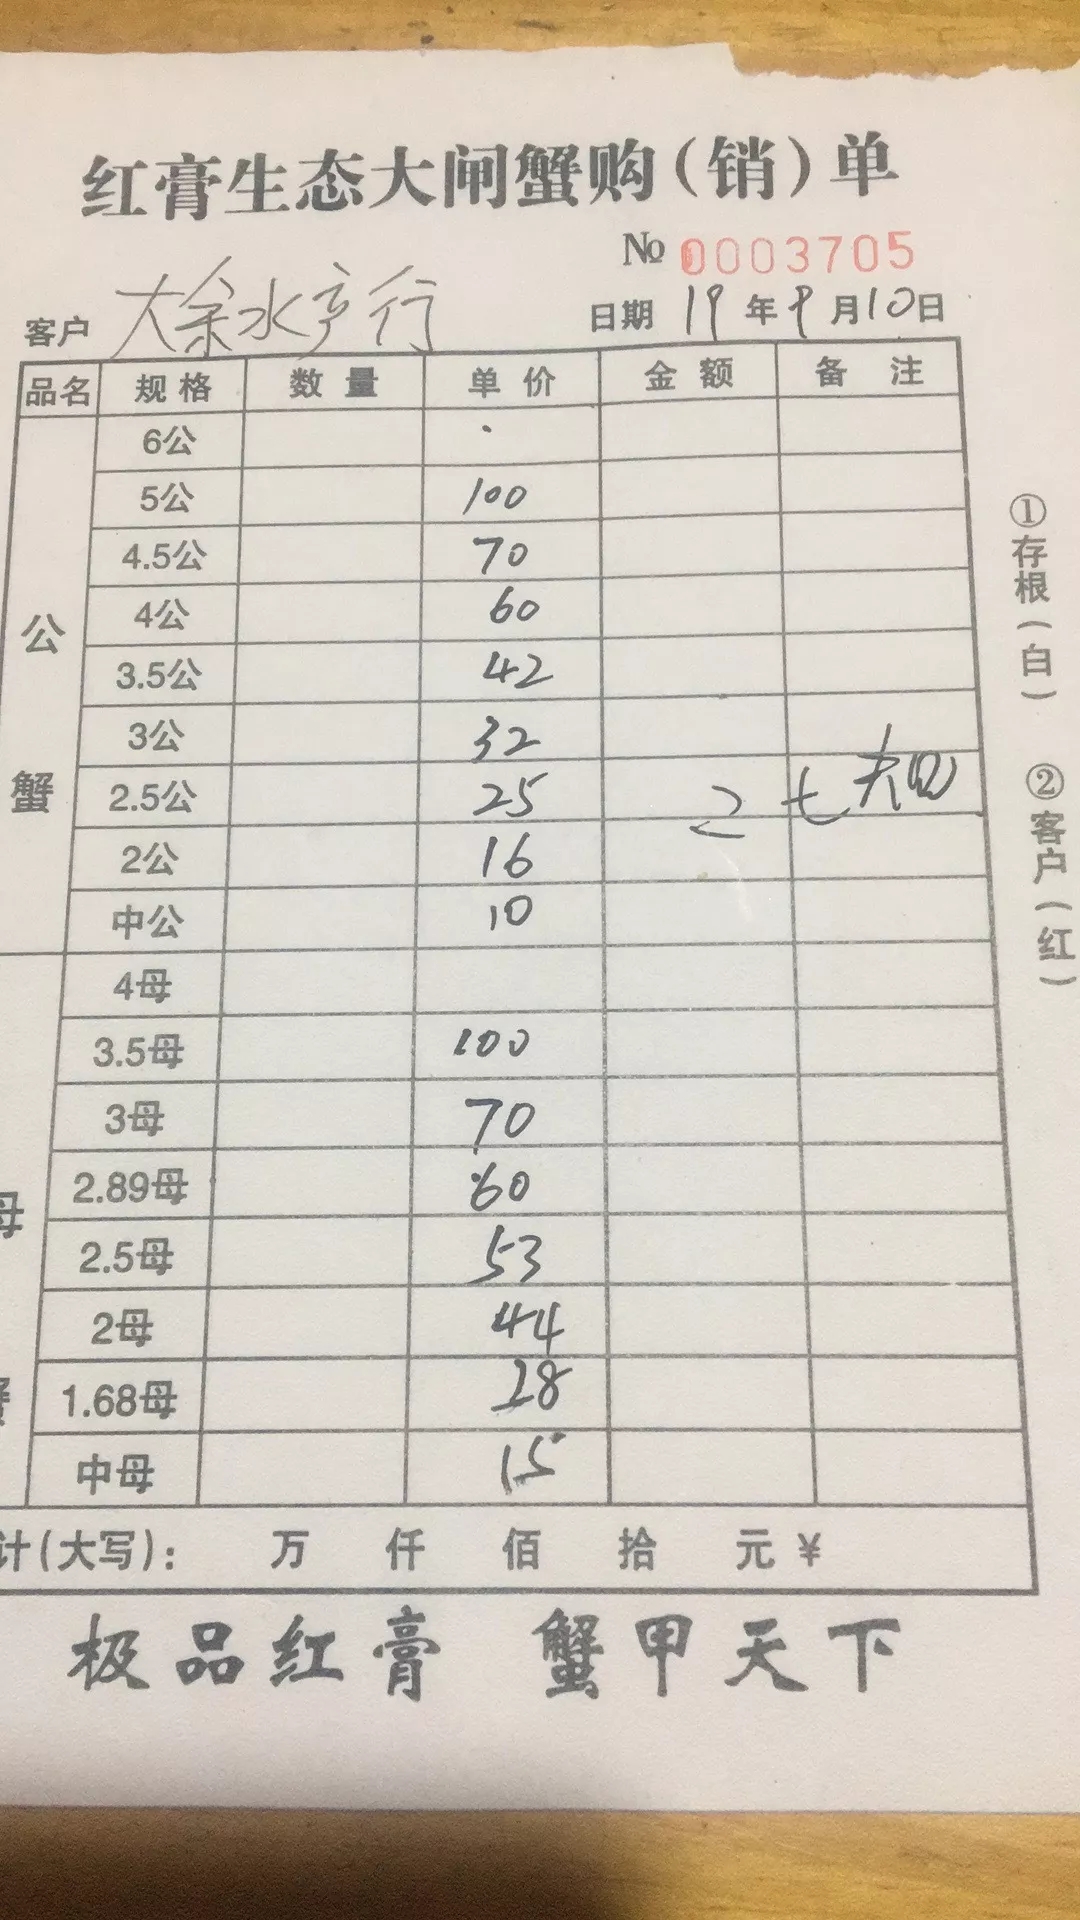 红膏生态大闸蟹购(销)单
№ 0003705
客户 大余水产行 日期 19年9月10日
品名 规格 数量 单价 金额 备注
公蟹
6公
5公 100
4.5公 70
4公 60
3.5公 42
3公 32
2.5公 25
2公 16
中公 10
4母
3.5母 100
3母 70
2.89母 60
2.5母 53
2母 44
1.68母 28
中母 15
母
计(大写): 万 仟 佰 拾 元 ¥
极品红膏 蟹甲天下
①存根(白) ②客户(红)